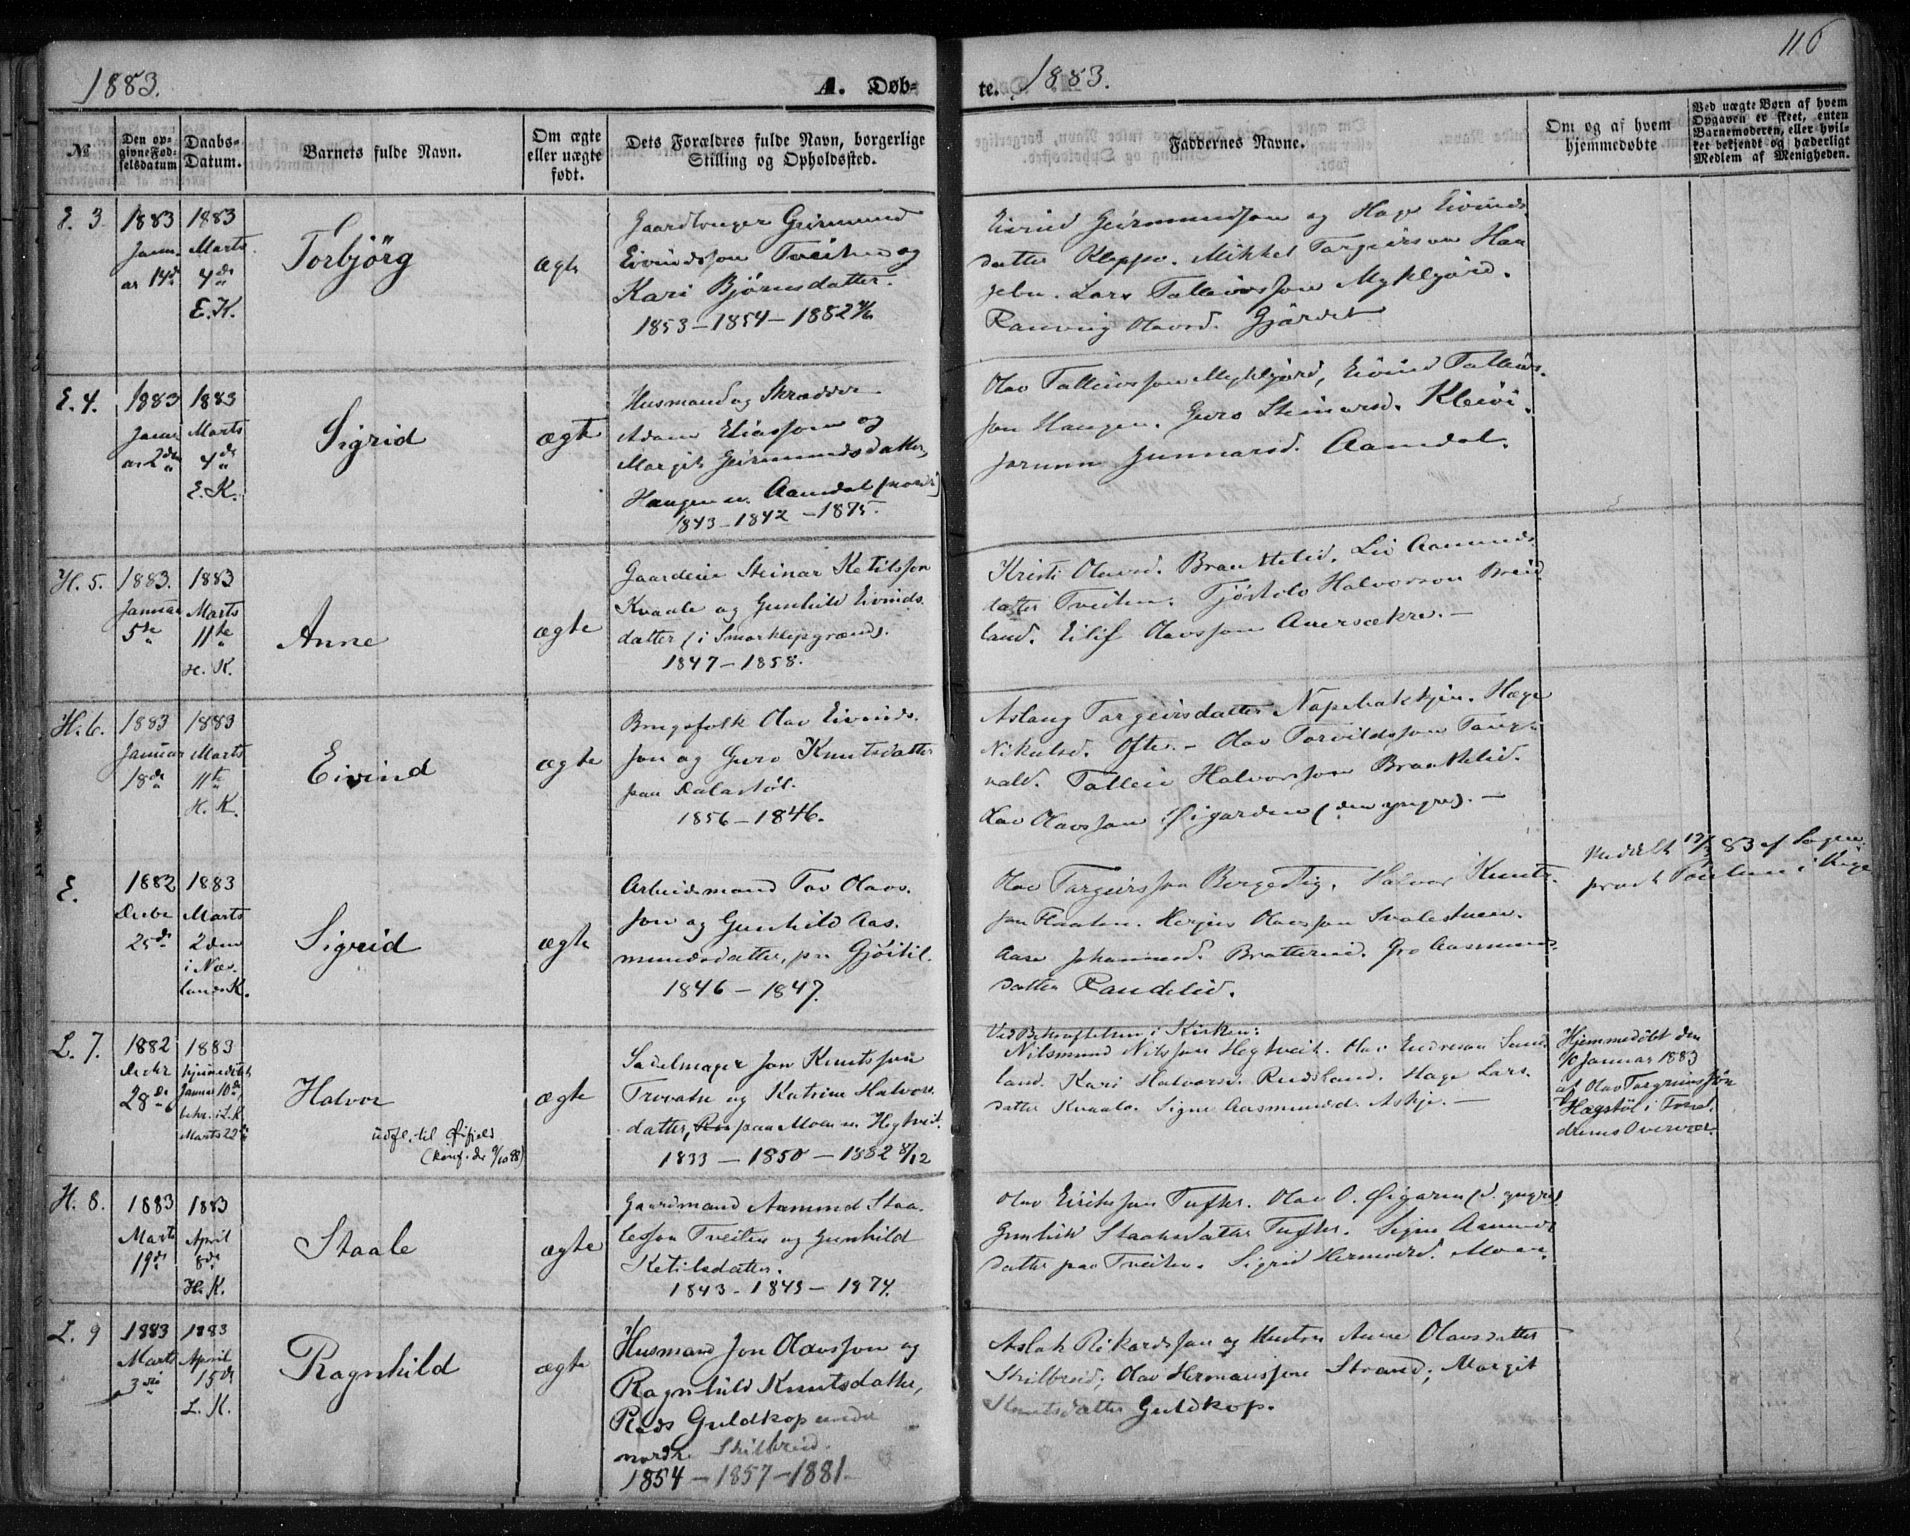 1883.
A. Døb-
te. 1883.
116
№
Den op-
givne Fød-
selsdatum
Daabs-
Datum.
Barnets fulde Navn.
Om ægte
eller uægte
født.
Dets Forældres fulde Navn, borgerlige
Stilling og Opholdssted.
Faddernes Navne.
Om og af hvem
hjemmedøbte
Ved uægte Børn af hvem
Opgaven er skeet, enten
Barnemoderen, eller hvil-
ket bekjendt og hæderligt
Medlem af Menigheden.
E. 3
1883
Janu-
ar 14de
1883
Marts
4de
E. K.
Torbjörg
ægte
Gaardbruger Geirmund
Eivindsson Tveiten og
Kari Bjørnsdatter.
1853 - 1854 - 1882
Eivind Geirmundson og Hage Eivinds
datter Kleppo. Mikkel Targeirson Hau
gebu. Lars Talleivsson Myklgjørd.
Ranveig Olavsd. Gjärdet
E. 4.
1883
Janu
ar 2den
1883
Marts
4de
E. K.
Sigrid
ægte
Husmand og Skrædder
Adam Eliasson og
Margit Geirmundsdatter,
Haugen u. Aamdal (nordr)
1843 - 1842 - 1875.
Olav Talleivsson Myklgjørd, Eivind Talleivs-
son Haugen. Guro Steinarsd. Kleivi.
Jorunn Gunnarsd. Aamdal.
H. 5.
1883.
Januar
5te
1883
Marts
11te
H. K.
Anne
ægte
Gaardeier Steinar Ketilsson
Kvaale og Gunhild Eivinds
datter (i Smørklepgrænd).
1847 - 1858.
Kristi Olavsd. Brautelid. Liv Aamunds
datter Tveiten. Tjøstolv Halvorson Breid
land. Eilif Olavsson Aversækre. -
H. 6.
1883
Januar
18de
1883
Marts
11te
H. K.
Eivind
ægte
Bygsefolk Olav Eivinds.
son og Guro Knutsdatter
paa Dalastøl.
1856 - 1846.
Aslaug Targeirsdatter Napebakkjin. Hæge
Nikulsd. Ofte. - Olav Torvildsson Taug-
vald. Talleiv Halvorsson Brautelid.
Olav Olavsson Øigarden (den yngre). -
E.
1882
Decbr
25de
1883
Marts
2den
i Næs-
lands K.
Sigrid
ægte
Arbeidsmand Tov Olavs.
son og Gunhild Aas.
mundsdatter, pa Gjøitil.
1846 - 1847.
Olav Targeirsson Bergestig. Halvor Knuts.
son Flaaten. Herjus Olavsson Svalestuen.
Aase Johannesd. Bratterud. Gro Aasmunds
datter Raudelid.
Meddelt 12/3 83 af Sogne
prest
L. 7.
1882
Decbr
28de
1883
hjemmedøbt
Januar 10de,
bekr. i L. K.
Marts 22de
Halvor
udfl. til Øifjeld
ægte
Sadelmager Jon Knutsson
Trovatn og Katrine Halvors.
datter, paa Moen u. Hegtveit.
1833 - 1850 - 1882 8/12
Ved Bekræftelsen i Kirken:
Nilsmund Nilsson Hegtveit. Olav Endreson Sand
land. Kari Halvorsd. Rudsland. Hage Lars.
datter Kvaale. Signe Aasmundsd. Askje. -
Hjemmedøbt den
10 Januar 1883
af Olav Targrimssøn
Hægstøl i Foræl.
drenes Overvær.
H. 8.
1883
Marts
19de
1883
April
8de
H. K.
Staale
ægte
Gaardmand Aamund Staa-
lesson Tveiten og Gunhild
Ketilsdatter.
1843 - 1845 - 1874.
Olav Eiriksson Tufte. Olav O. Øigaren (d. yngre)
Gunhild Staalesdatter Tufte. Signe Aamunds
datter paa Tveiten. Sigrid Hermodsd. Moen.
L. 9
1883
Marts
3die
1883
April
15de
L. K.
Ragnhild
ægte
Husmand Jon Olavsson og
Ragnhild Knutsdatter,
Plads Guldkop under
nordre Skilbreid.
1854 - 1857 - 1881.
Aslak Rikardsson og Hustru Anne Olavsdatter
Skilbreid; Olav Hermansson Strand; Margit
Knutsdatter Guldkop.